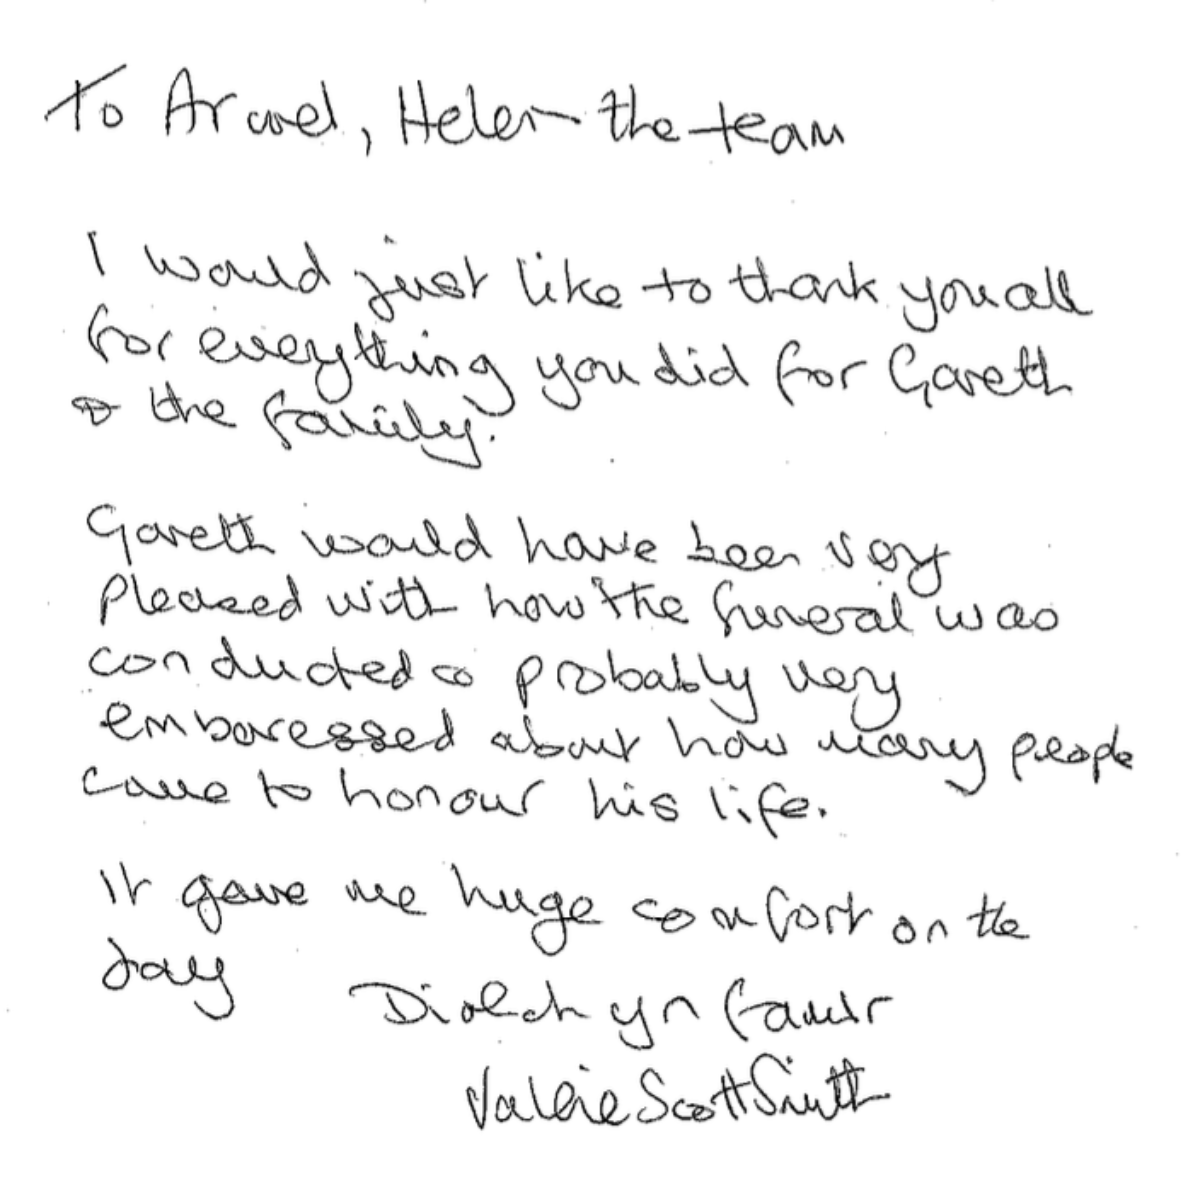 To Arwel, Helen the team
I would just like to thank you all
for everything you did for Gareth
& the family.
Gareth would have been very
pleased with how the funeral was
conducted & probably very
embaressed about how many people
came to honour his life.
It gave me huge comfort on the
day
Diolch yn fawr
Valerie Scott Smith